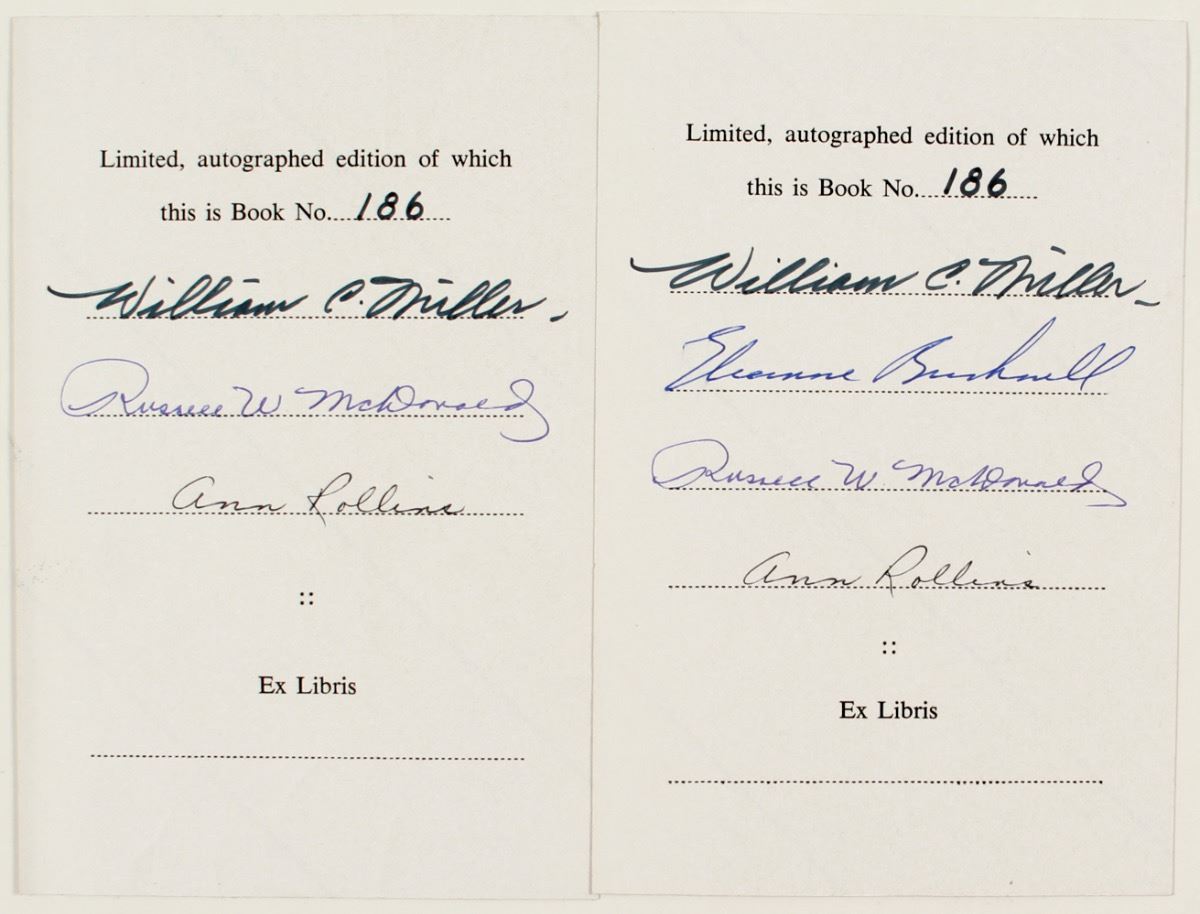 Limited, autographed edition of which
this is Book No....186....
William C. Miller
Russell W McDonald
Ann Rollins
::
Ex Libris
Limited, autographed edition of which
this is Book No....186....
William C. Miller
Eleanore Bushnell
Russell W. McDonald
Ann Rollins
::
Ex Libris